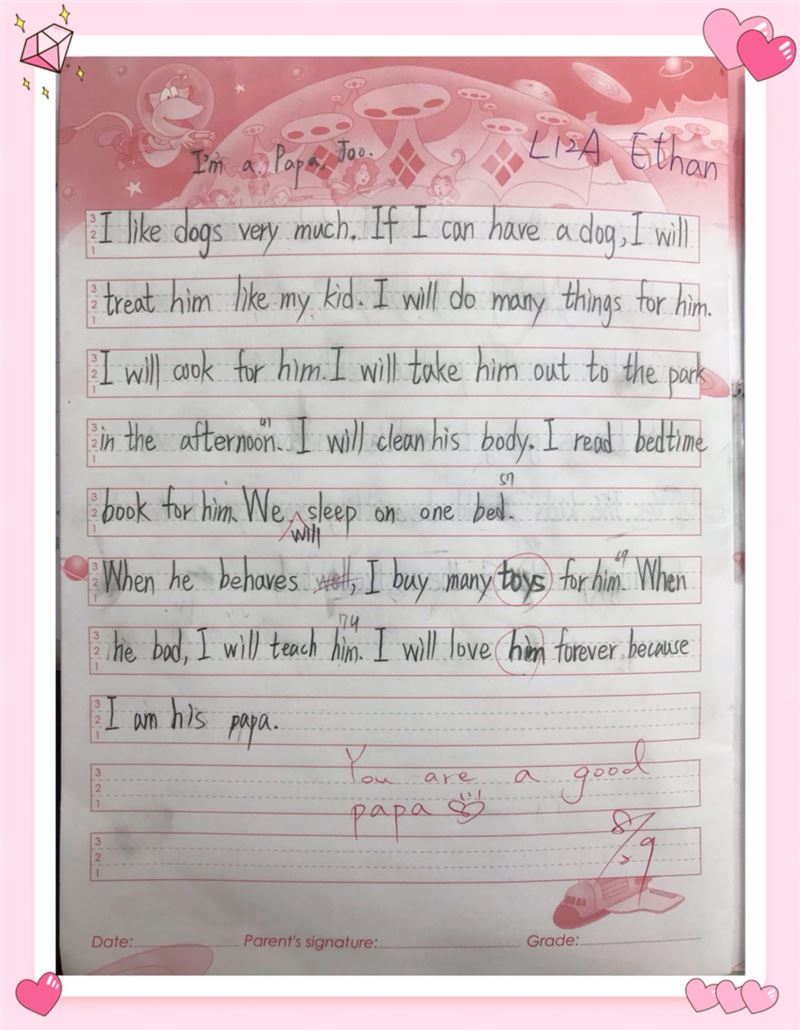 I'm a Papa, Too.
L12A Ethan
I like dogs very much. If I can have a dog, I will
treat him like my kid. I will do many things for him.
I will cook for him. I will take him out to the park
41
in the afternoon. I will clean his body. I read bedtime
57
book for him. We sleep on one bed.
will
69
When he behaves well, I buy many toys for him. When
74
he bad, I will teach him. I will love him forever, because
I am his papa.
You are a good
papa
Date: Parent's signature: Grade: